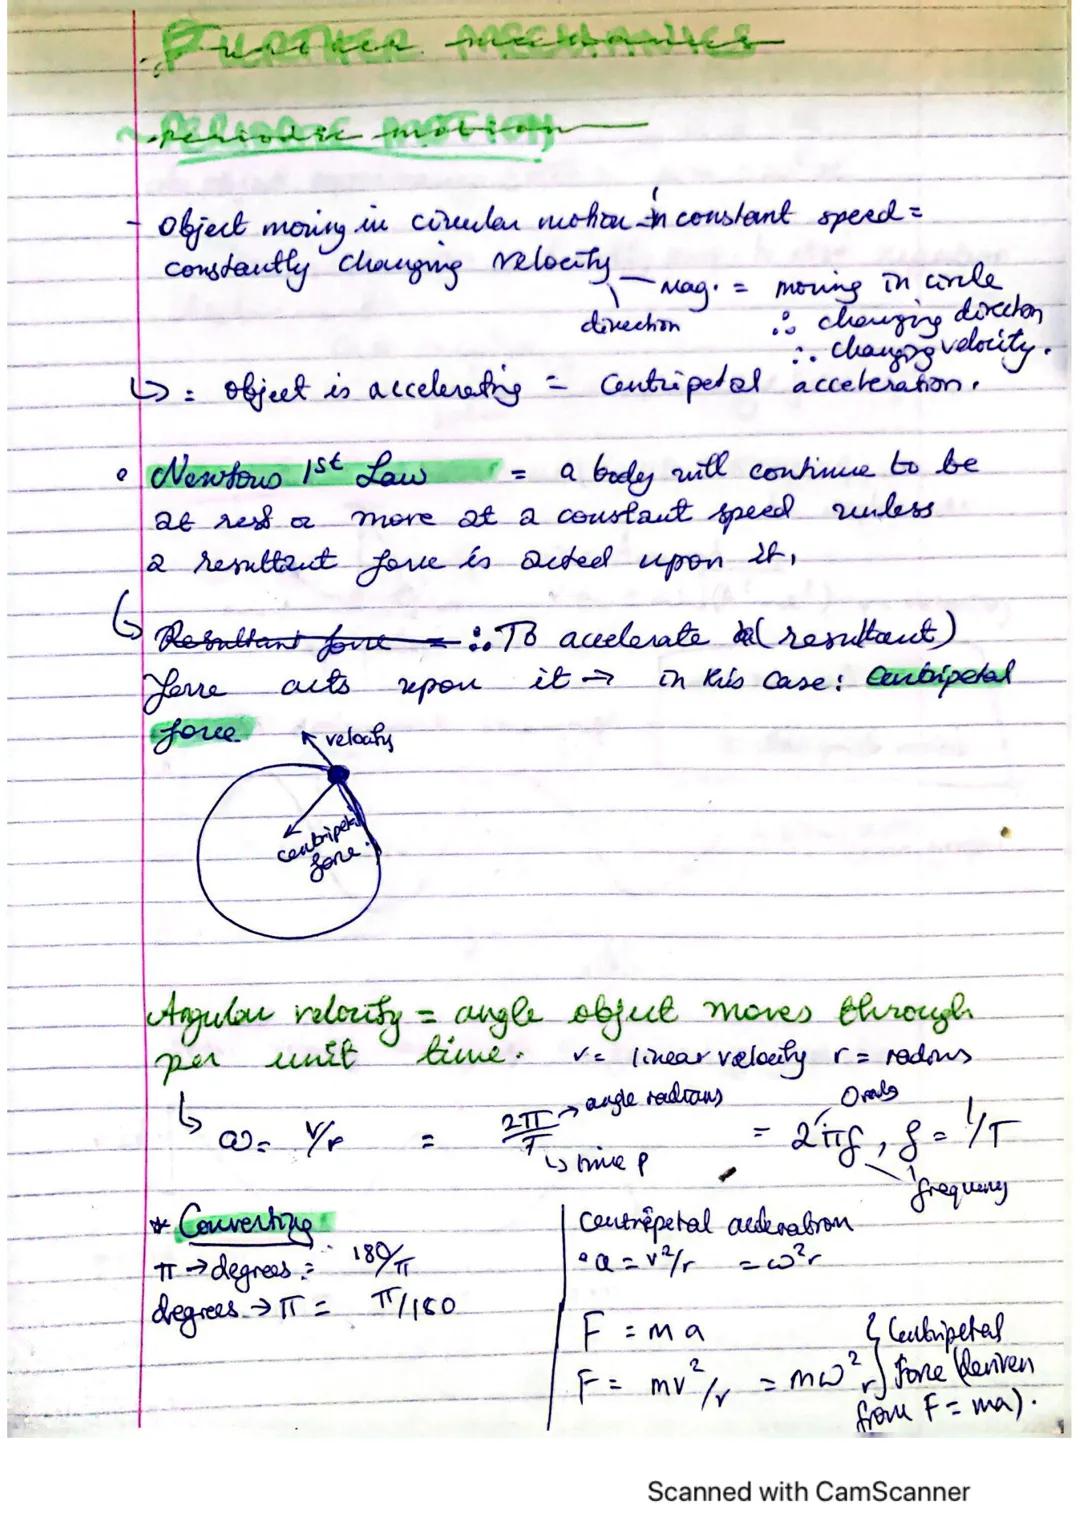 FURTHER MECHANICS
~ PERIODIC MOTION
- Object moving in circular motion in constant speed =
constantly changing velocity
— Mag. = moving in circle
direction ∴ changing direction
∴ changing velocity.
↳ = object is accelerating = centripetal acceleration.
• Newtons 1st Law = a body will continue to be
at rest or move at a constant speed unless
a resultant force is acted upon it,
↳ Resultant force = ∴ To accelerate (resultant)
force acts upon it → in this case: Centripetal
force
velocity
centripetal
force.
Angular velocity = angle object moves through
per unit time. v = linear velocity r = radius
↳ ω = v/r = 2π/T = 2πf, f = 1/T
→ angle radians
↳ time p
frequency
* Converting
π → degrees = 180/π
degrees → π = π/180
Centripetal acceleration
• a = v²/r = ω²r
F = ma
F = mv²/r = mω²r } Centripetal
force (deriven
from F = ma).
Scanned with CamScanner